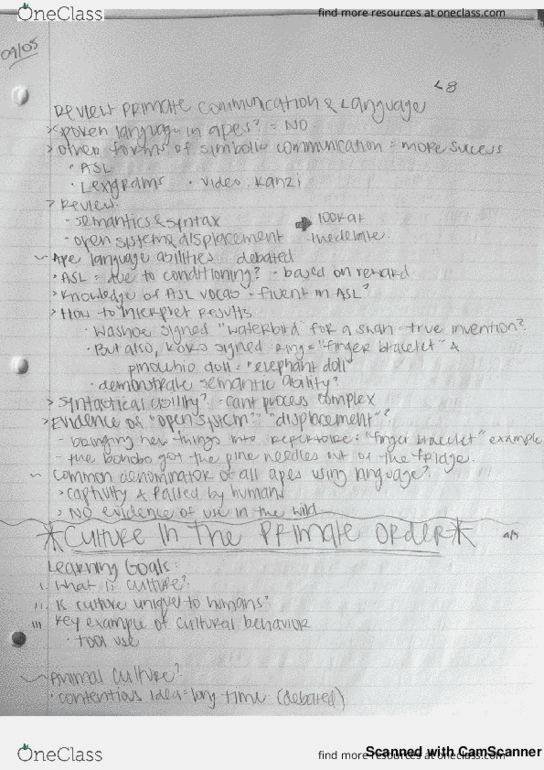 OneClass
find more resources at oneclass.com
09/05
L8
Review Primate Communication & Language
> spoken language in apes? = NO
> other forms of simbolic communication = more sucess
• ASL
• Lexigrams • video: Kanzi
> Review:
- semantics & syntax ➡ look at
- open systems, displacement the debate
~ Ape language abilities debated
> ASL = due to conditioning? - based on reward
> Knowledge of ASL vocab - fluent in ASL?
> How to interpret results
• Washoe signed "waterbird" for a swan - true invention?
• But also, Koko signed ring = "finger bracelet" &
pinocchio doll = "elephant doll"
• demonstrate semantic ability?
> Syntactical ability? - cant process complex
> Evidence of "open system" "displacement"?
- bringing new things into repertoire: "finger bracelet" example
- the bonobo got the pine needles out of the fridge.
~ Common denominator of all apes using language?
> captivity & raised by humans
> No evidence of use in the wild
*Culture in the Primate Order*
Learning Goals:
i. What is culture?
ii. is culture unique to humans?
iii. key example of cultural behavior
• tool use
~ Animal Culture?
• contentious idea = long time (debated)
OneClass
find more resources at oneclass.com
Scanned with CamScanner